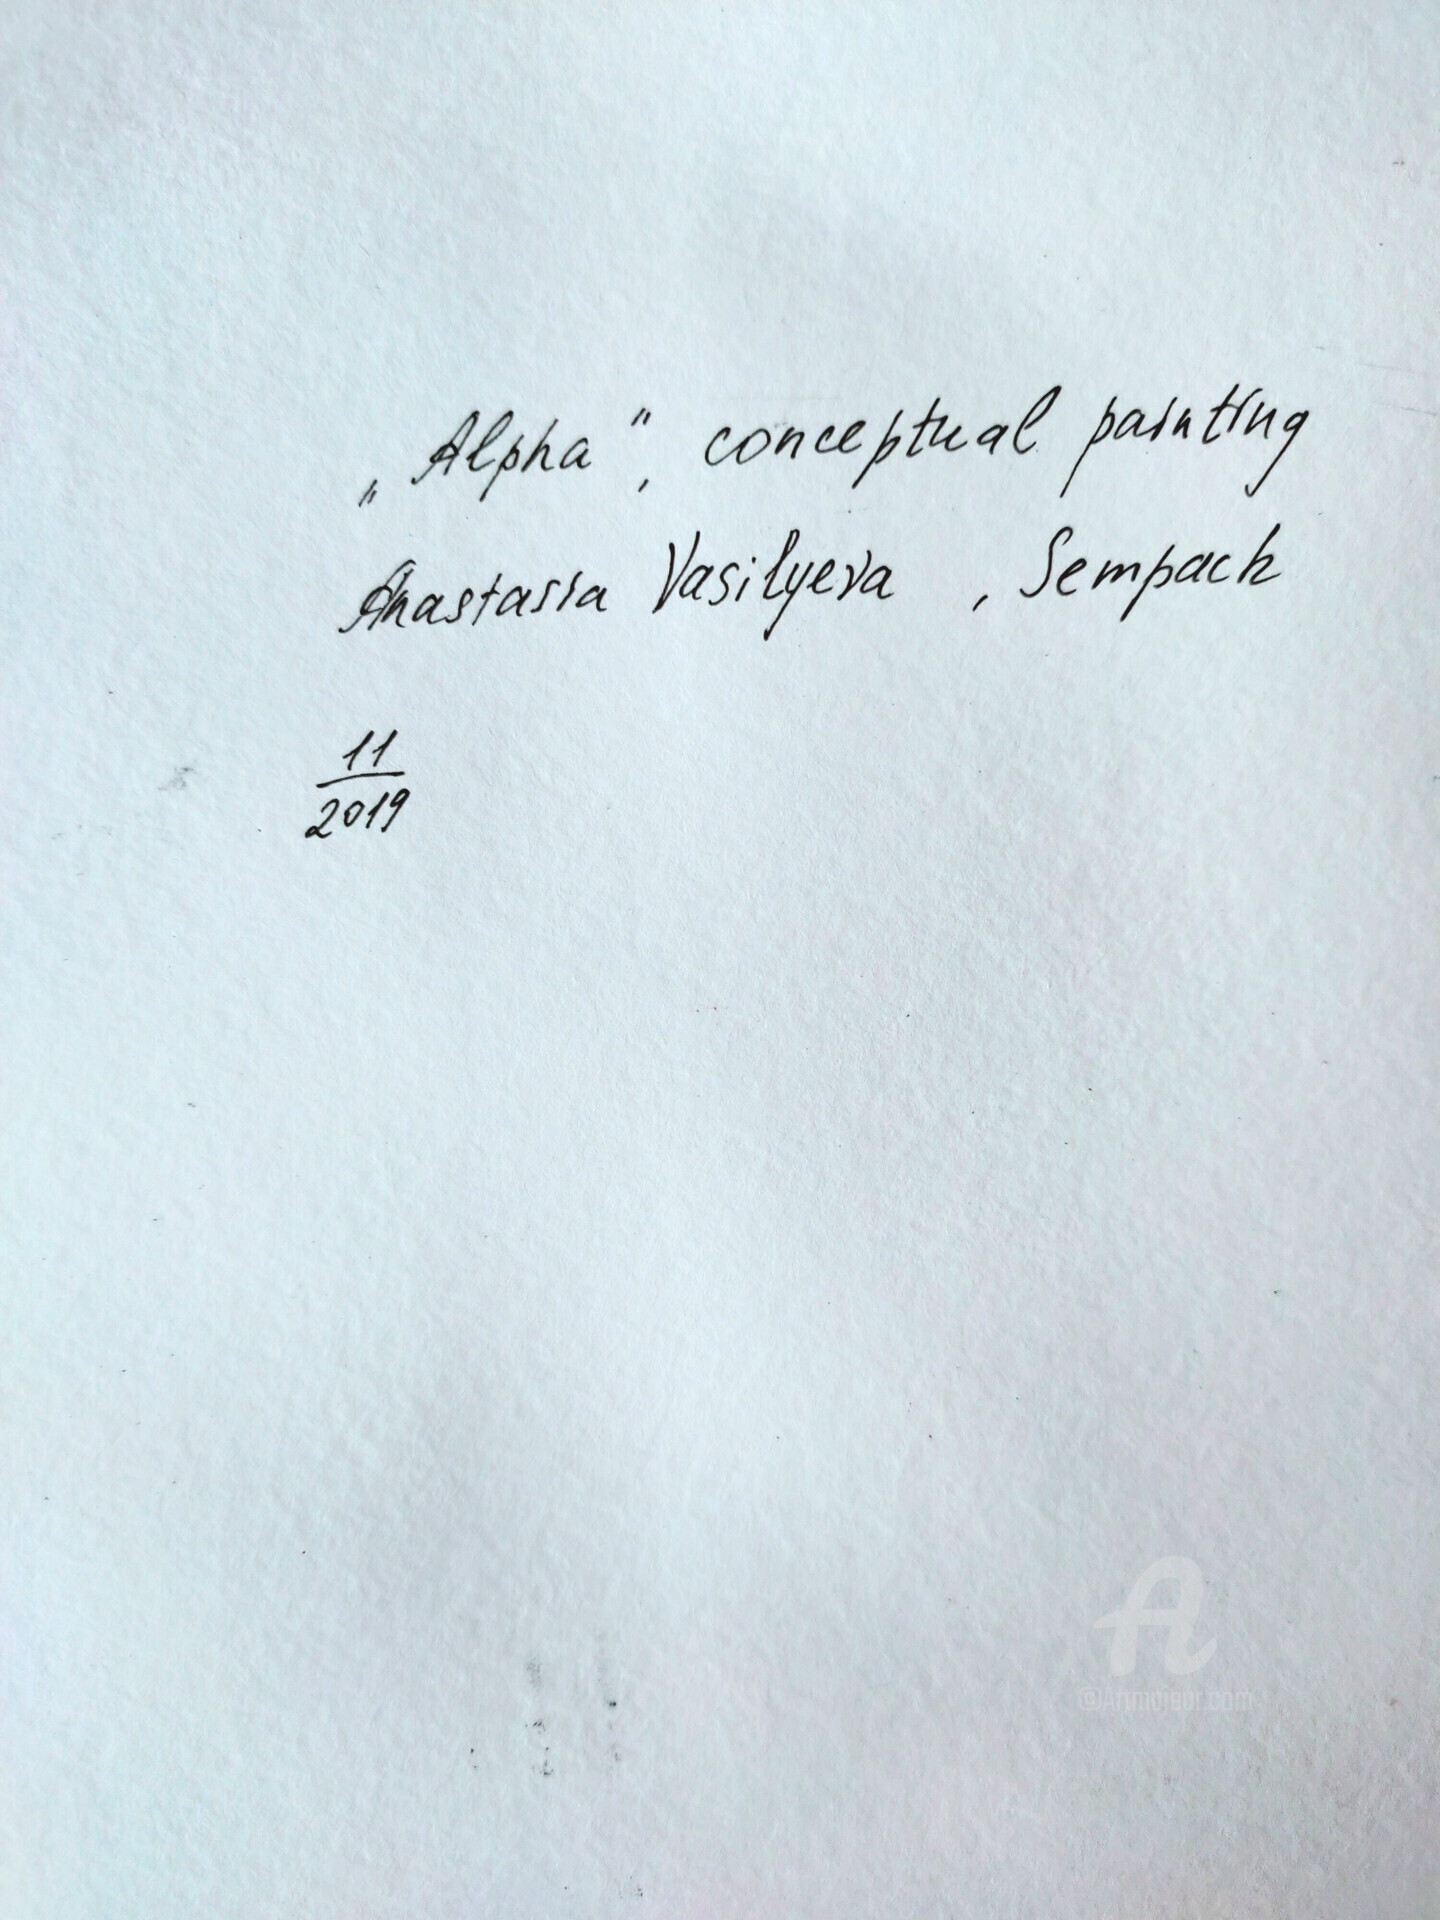 „Alpha“, conceptual painting
Anastasia Vasilyeva , Sempach
11
2019
@Artmajeur.com